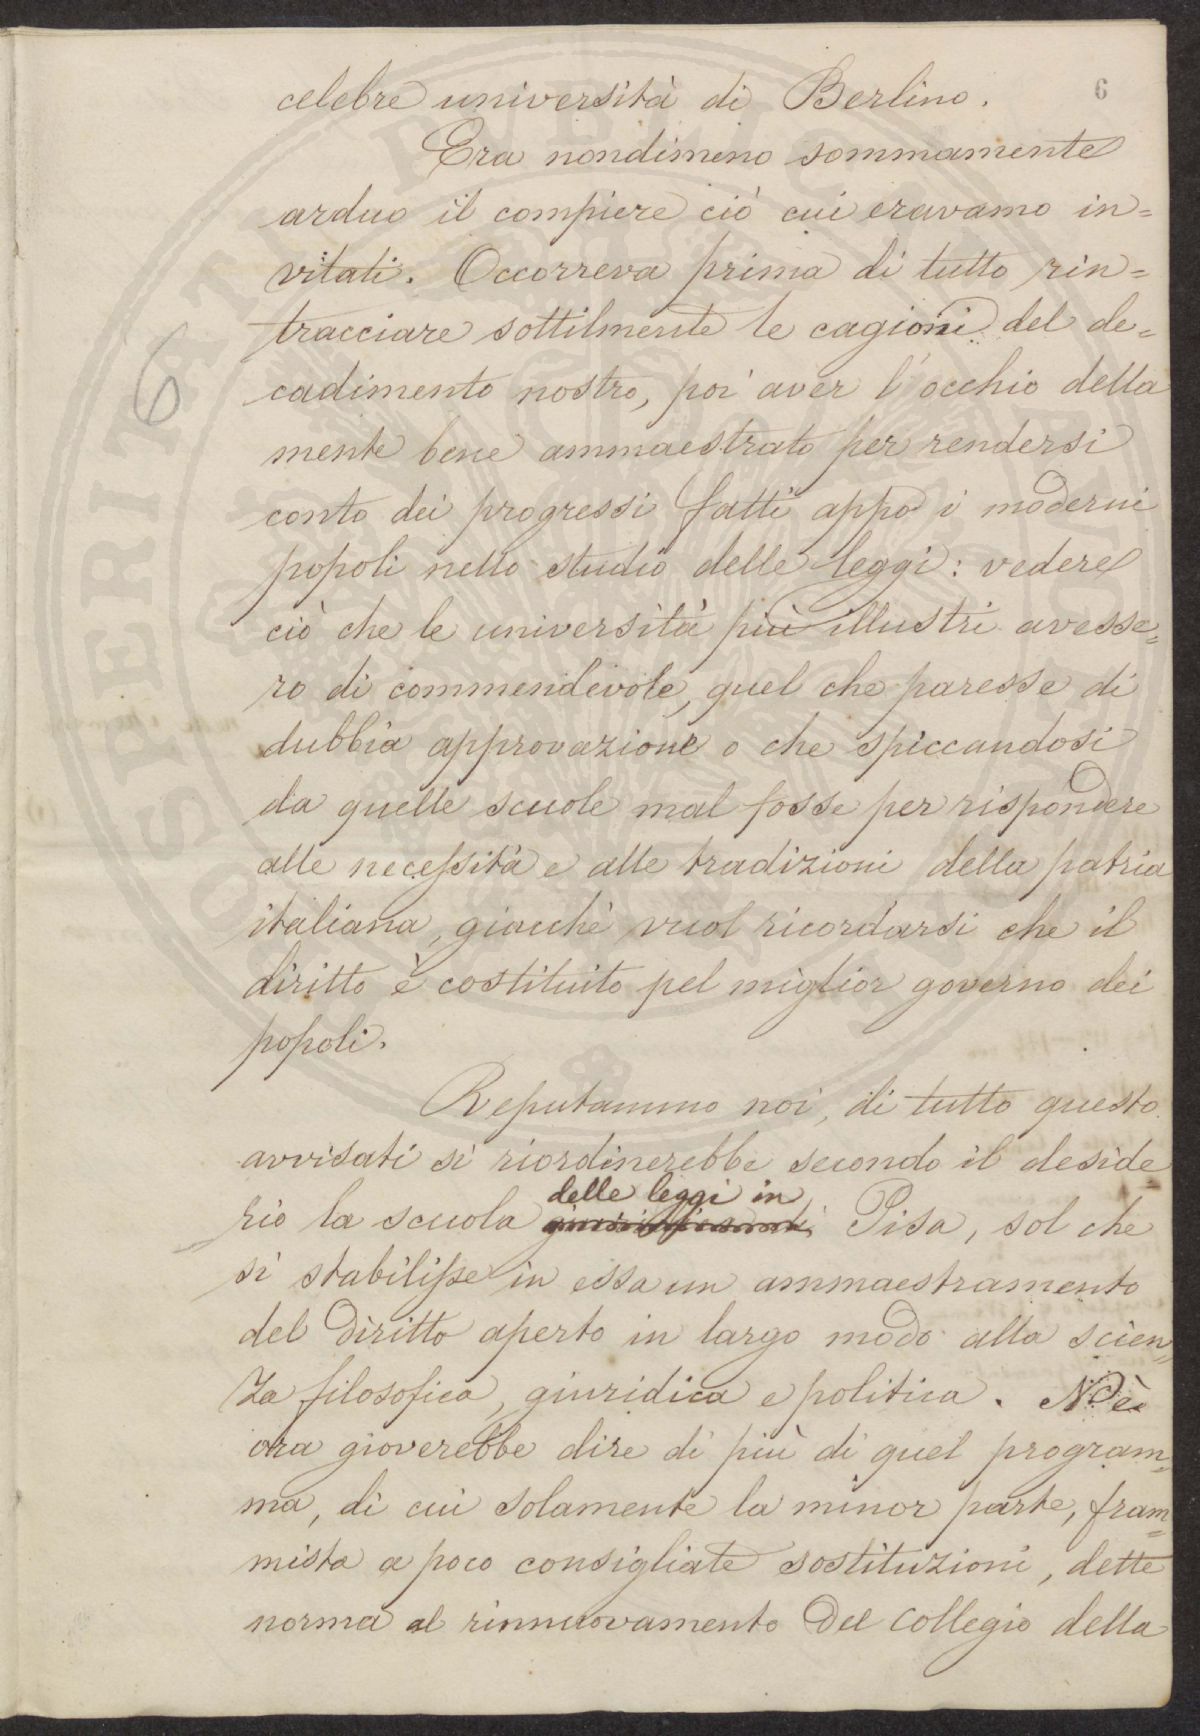 6
celebre università di Berlino.
Era nondimeno sommamente
arduo il compiere ciò cui eravamo in=
vitati. Occorreva prima di tutto rin=
tracciare sottilmente le cagioni del de=
cadimento nostro, poi aver l'occhio della
6
mente bene ammaestrato per rendersi
conto dei progressi fatti appo i moderni
popoli nello studio delle leggi: vedere
ciò che le università più illustri avesse=
ro di commendevole, quel che paresse di
dubbia approvazione o che spiccandosi
da quelle scuole mal fosse per rispondere
alle necessità e alle tradizioni della patria
italiana, giacchè vuol ricordarsi che il
diritto è costituito pel miglior governo dei
popoli.
Reputammo noi, di tutto questo
avvisati si riordinerebbe secondo il deside
delle leggi in
rio la scuola Pisa, sol che
si stabilisse in essa un ammaestramento
del diritto aperto in largo modo alla scien=
za filosofica, giuridica e politica. Nè
ora gioverebbe dire di più di quel program=
ma, di cui solamente la minor parte, fram=
mista a poco consigliate sostituzioni, dette
norma al rinnuovamento del collegio della